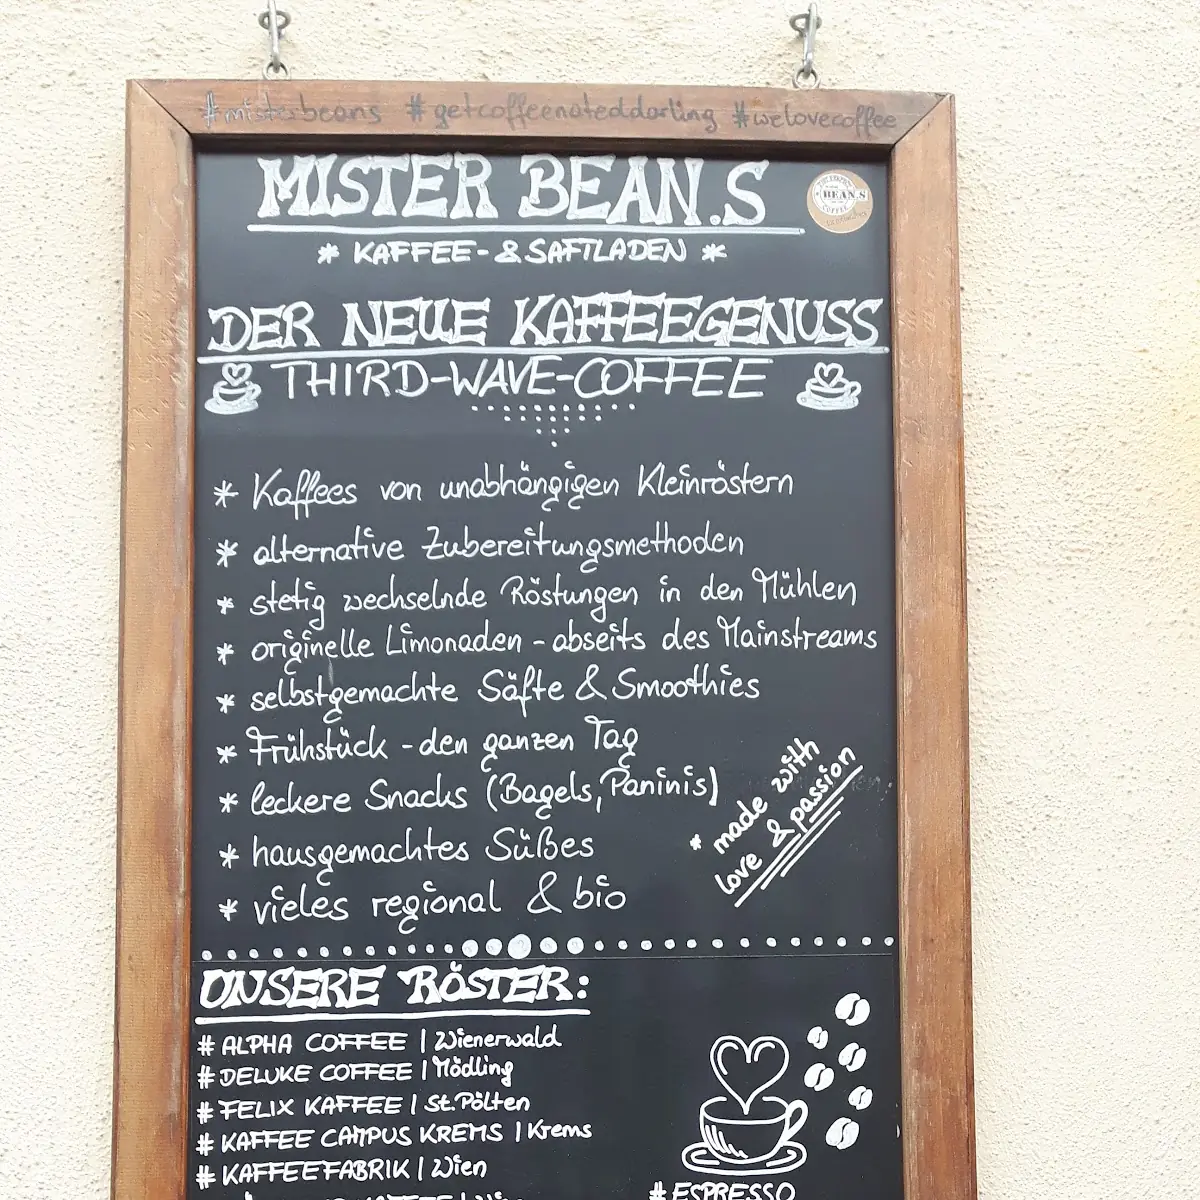 #misterbeans #getcoffeenateddarling #welovecoffee
MISTER BEAN.S
BEAN.S
COFFEE
* KAFFEE- & SAFTLADEN *
DER NEUE KAFFEEGENUSS
THIRD-WAVE-COFFEE
* Kaffees von unabhängigen Kleinröstern
* alternative Zubereitungsmethoden
* stetig wechselnde Röstungen in den Mühlen
* originelle Limonaden - abseits des Mainstreams
* selbstgemachte Säfte & Smoothies
* Frühstück - den ganzen Tag
* leckere Snacks (Bagels, Paninis)
* hausgemachtes Süßes
* vieles regional & bio
* made with
love & passion
UNSERE RÖSTER:
# ALPHA COFFEE | Wienerwald
# DELUKE COFFEE | Mödling
# FELIX KAFFEE | St. Pölten
# KAFFEE CAMPUS KREMS | Krems
# KAFFEEFABRIK | Wien
# ESPRESSO